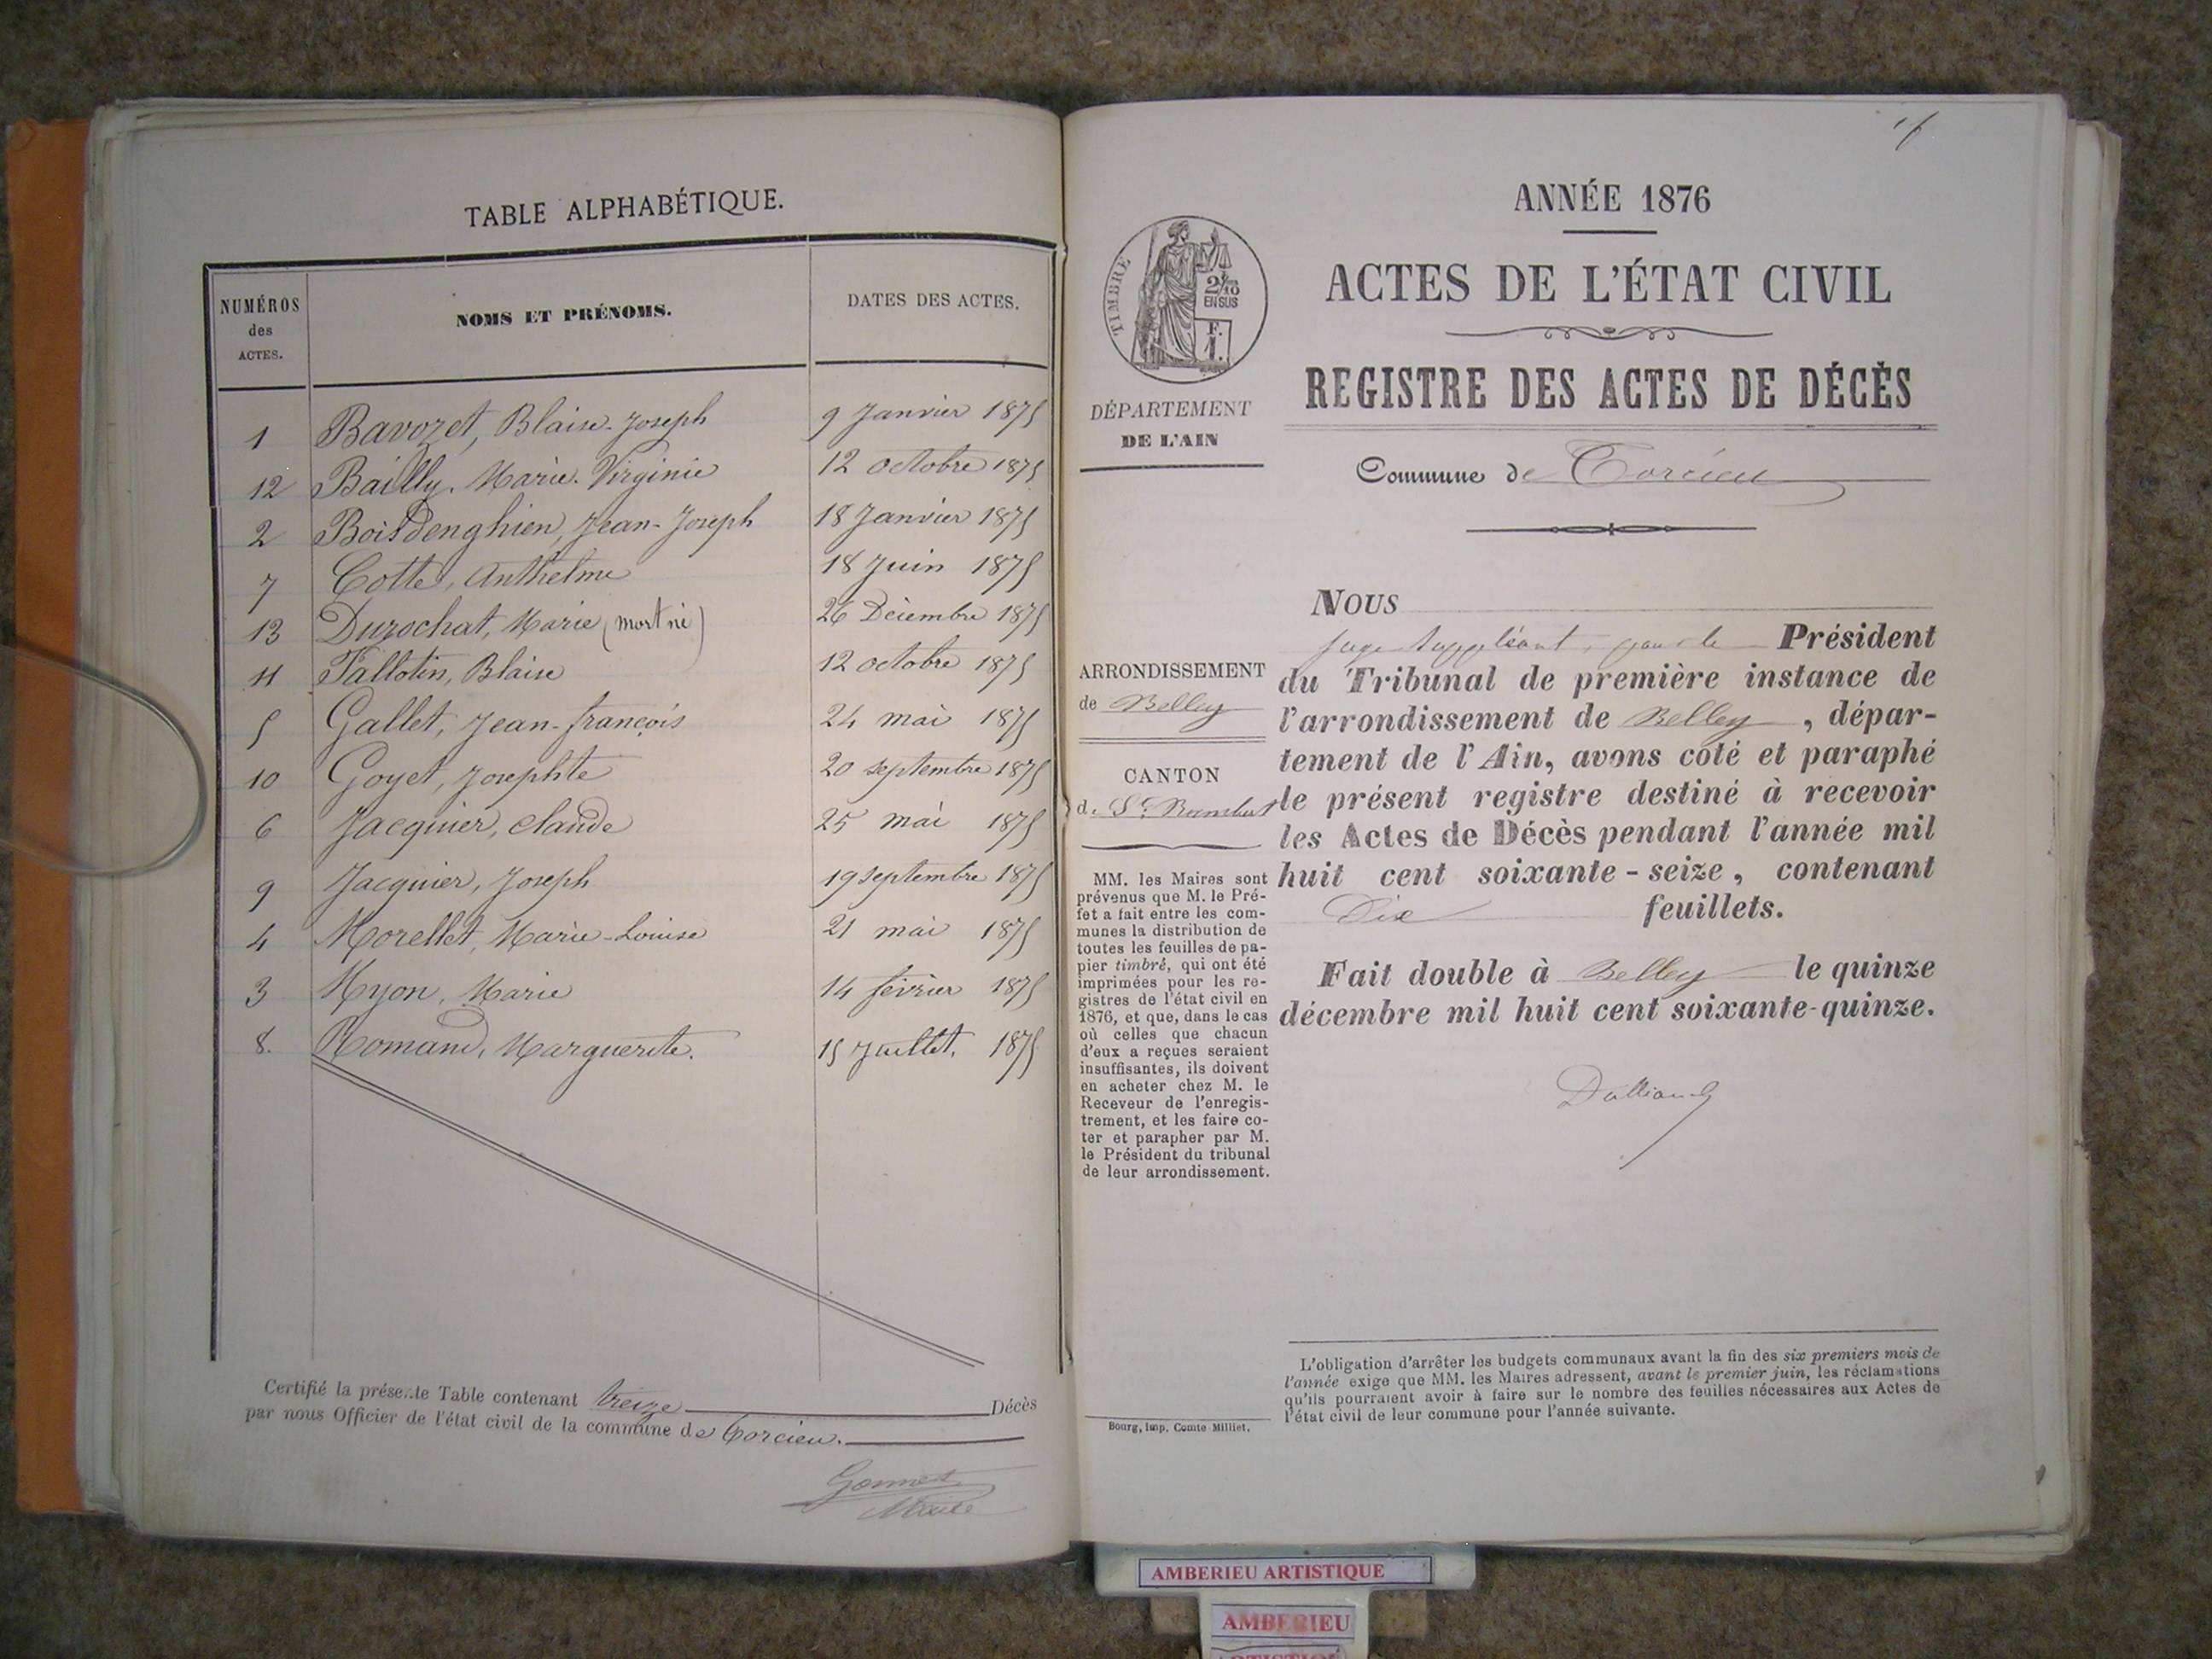 TABLE ALPHABÉTIQUE.
NUMÉROS des ACTES.
NOMS ET PRÉNOMS.
DATES DES ACTES.
1 Bavozet, Blaise-Joseph 9 Janvier 1875
12 Bailly, Marie-Virginie 12 octobre 1875
2 Boisdenghien, Jean-Joseph 18 Janvier 1875
7 Cotte, Anthelme 18 Juin 1875
13 Durochat, Marie (mort né) 26 Décembre 1875
11 Fallotin, Blaise 12 octobre 1875
5 Gallet, Jean-françois 24 mai 1875
10 Goyet, Josephte 20 septembre 1875
6 Jacquier, Claude 25 mai 1875
9 Jacquier, Joseph 19 septembre 1875
4 Morellet, Marie-Louise 21 mai 1875
3 Myon, Marie 14 février 1875
8. Romand, Marguerite. 15 Juillet, 1875
Certifié la présente Table contenant treize Décès
par nous Officier de l'état civil de la commune de Torcieu.
Gonnet
Maire
TIMBRE
2/10
EN SUS
F.
1.
DÉPARTEMENT
DE L'AIN
ARRONDISSEMENT
de Belley
CANTON
de St Rambert
MM. les Maires sont
prévenus que M. le Pré-
fet a fait entre les com-
munes la distribution de
toutes les feuilles de pa-
pier timbré, qui ont été
imprimées pour les re-
gistres de l'état civil en
1876, et que, dans le cas
où celles que chacun
d'eux a reçues seraient
insuffisantes, ils doivent
en acheter chez M. le
Receveur de l'enregis-
trement, et les faire co-
ter et parapher par M.
le Président du tribunal
de leur arrondissement.
Bourg, Imp. Comte-Milliet.
ANNÉE 1876
ACTES DE L'ÉTAT CIVIL
REGISTRE DES ACTES DE DÉCÈS
Commune de Torcieu
NOUS
juge suppléant, pour le Président
du Tribunal de première instance de
l'arrondissement de Belley, dépar-
tement de l'Ain, avons coté et paraphé
le présent registre destiné à recevoir
les Actes de Décès pendant l'année mil
huit cent soixante-seize, contenant
Dix feuillets.
Fait double à Belley le quinze
décembre mil huit cent soixante-quinze.
L'obligation d'arrêter les budgets communaux avant la fin des six premiers mois de
l'année exige que MM. les Maires adressent, avant le premier juin, les réclamations
qu'ils pourraient avoir à faire sur le nombre des feuilles nécessaires aux Actes de
l'état civil de leur commune pour l'année suivante.
AMBERIEU ARTISTIQUE
AMBERIEU
ARTISTIQUE